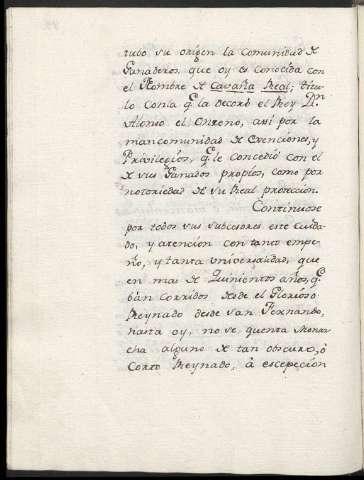 tubo su origen la comunidad de
Ganaderos, que oy es conocida con
el Nombre de Cavaña Real; titu
lo con la q.e la decoró el Rey D.n
Alonso el Onzeno, asi por la
mancomunidad de Esenciones, y
Privilegios, q.e le concedió con el
de sus Ganados propios, como por
notoriedad de su Real proteccion.
Continuose
por todos sus subcesores este cuida
do, y atencion con tanto empe
ño, y tanta universalidad, que
en mas de Quinientos años, q.e
ban corridos desde el Glorioso
Reynado desde San Fernando,
hasta oy, no se quenta Monar
cha alguno de tan obscuro, ó
corto Reynado, á escepcion